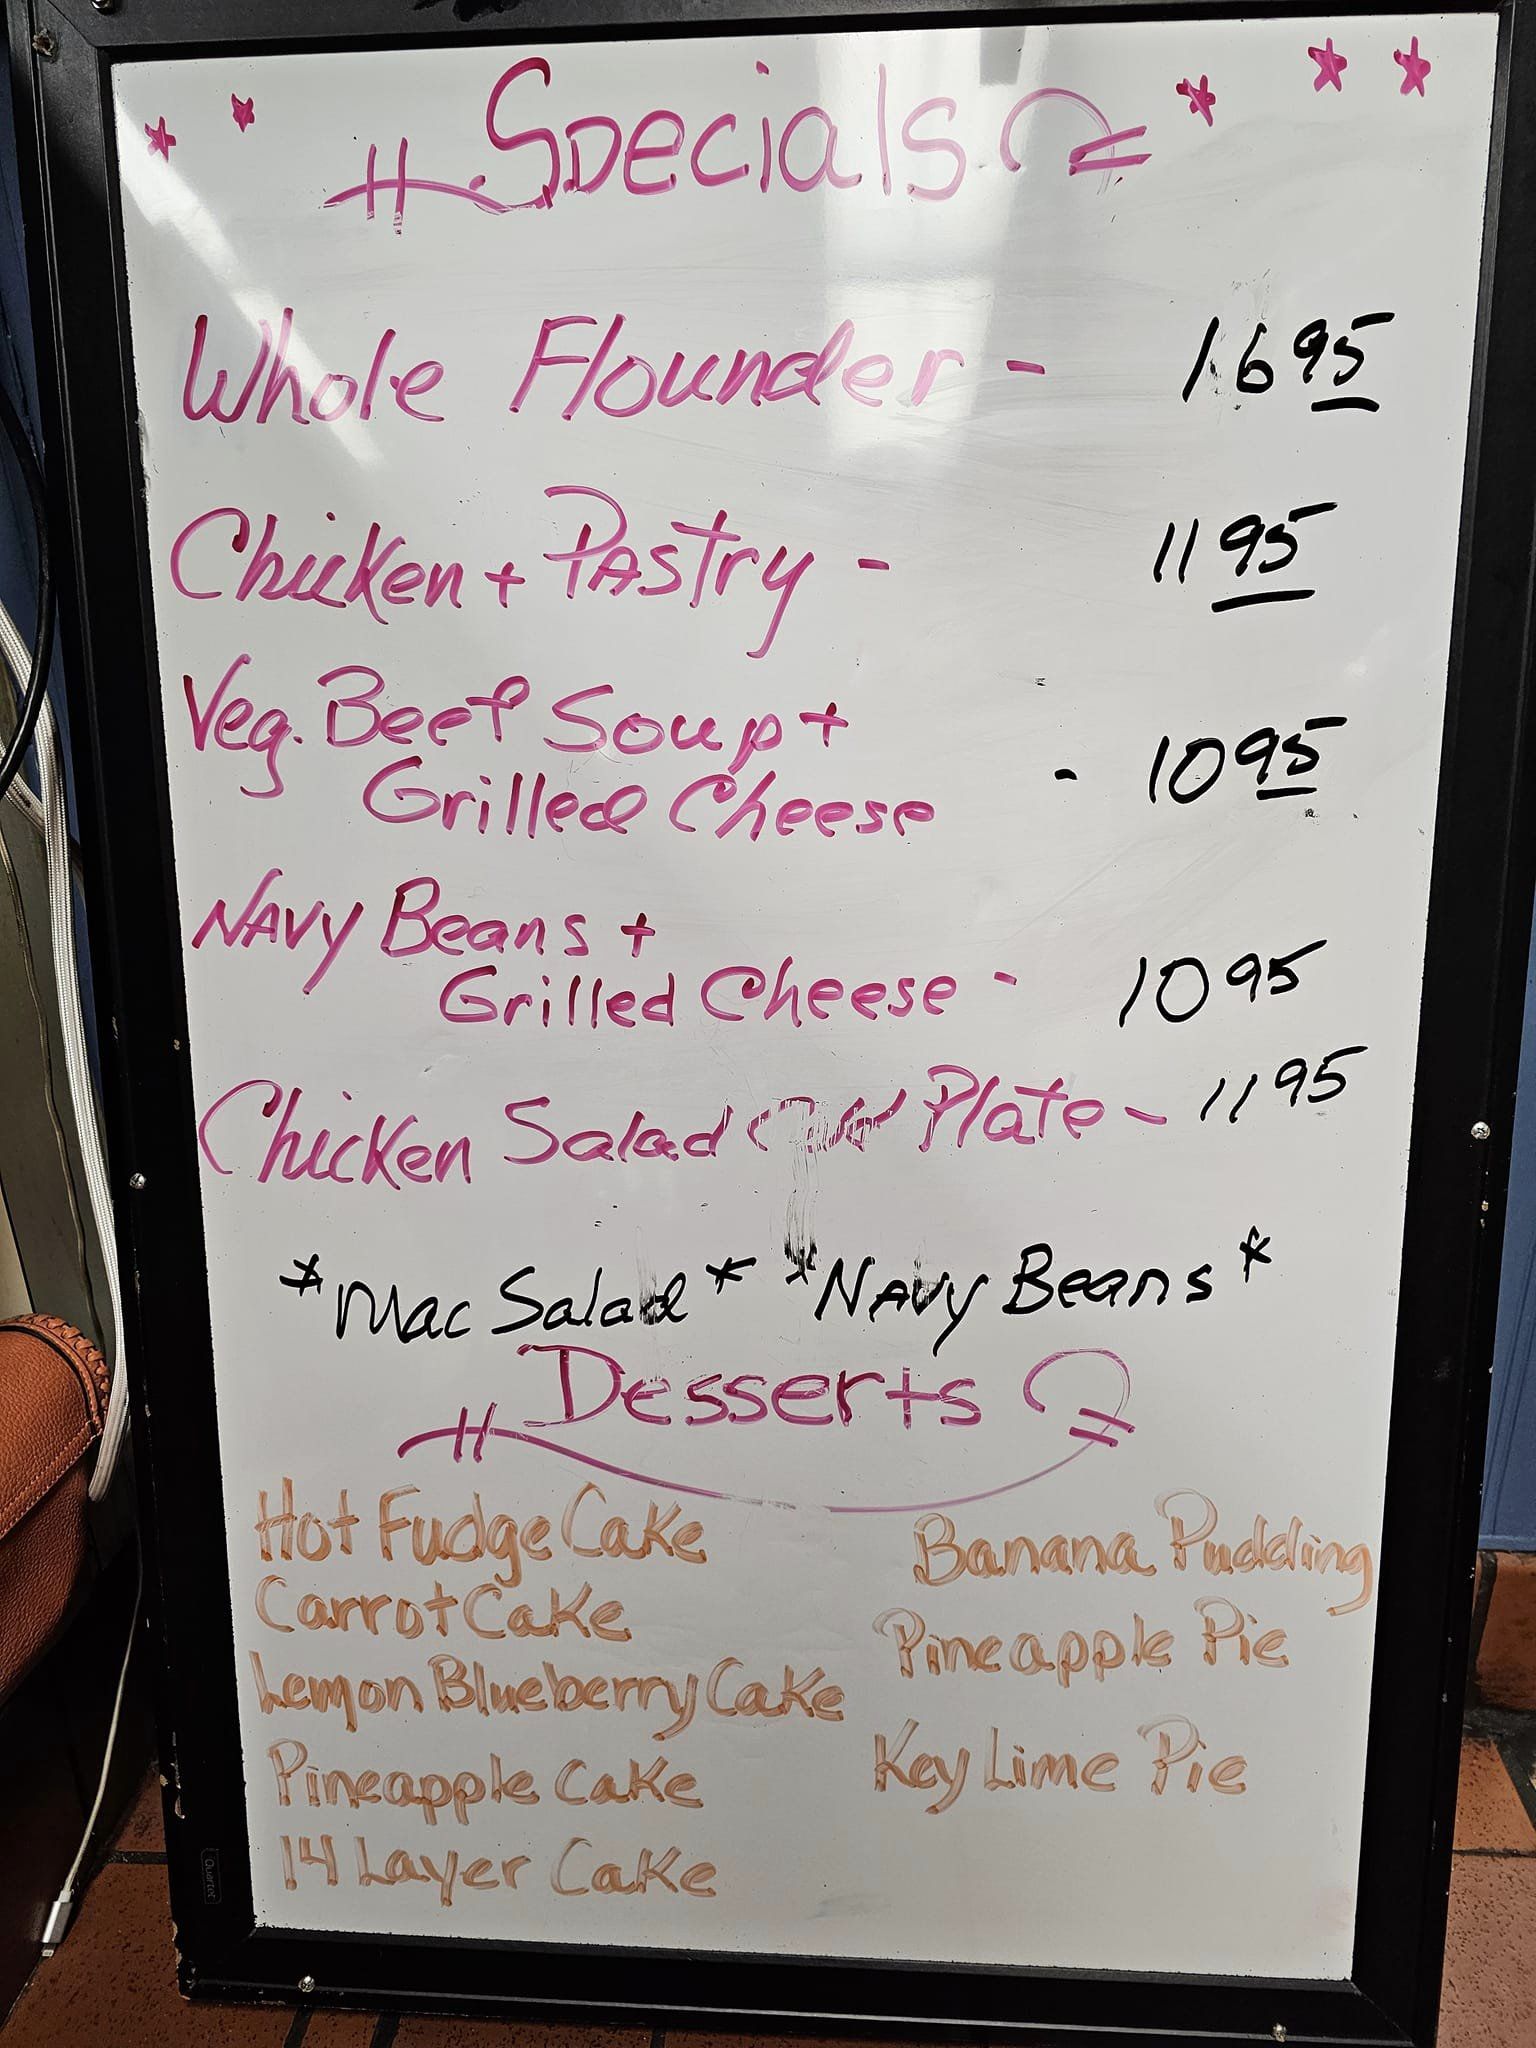 Specials
Whole Flounder - 16 95
Chicken + Pastry - 11 95
Veg. Beef Soup +
Grilled Cheese - 10 95
Navy Beans +
Grilled Cheese - 10 95
Chicken Salad Plate - 11 95
*Mac Salad* *Navy Beans*
Desserts
Hot Fudge Cake
Carrot Cake
Lemon Blueberry Cake
Pineapple Cake
14 Layer Cake
Banana Pudding
Pineapple Pie
Key Lime Pie
Quartet